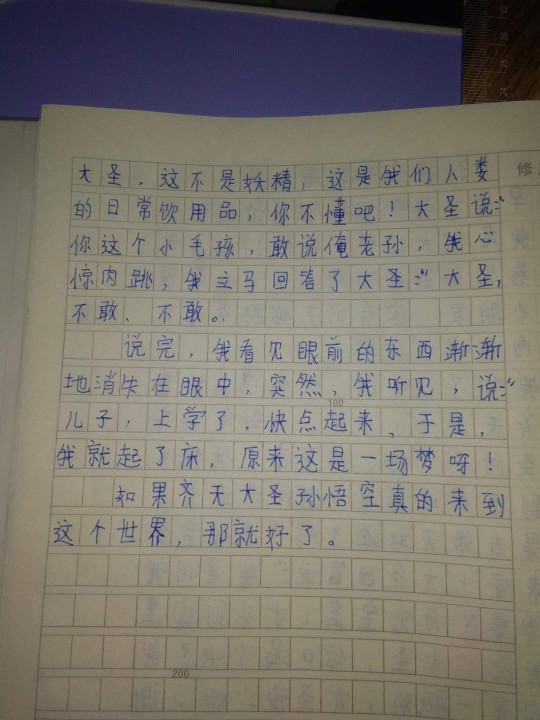 修
大圣,这不是妖精,这是我们人类
的日常饮用品,你不懂吧!大圣说:“
你这个小毛孩,敢说俺老孙,我心
惊肉跳,我立马回答了大圣:“大圣,
不敢、不敢。
说完,我看见眼前的东西渐渐
地消失在眼中,突然,我听见,说:“
100
儿子,上学了,快点起来,于是,
我就起了床,原来这是一场梦呀!
如果齐天大圣孙悟空真的来到
这个世界,那就好了。
200